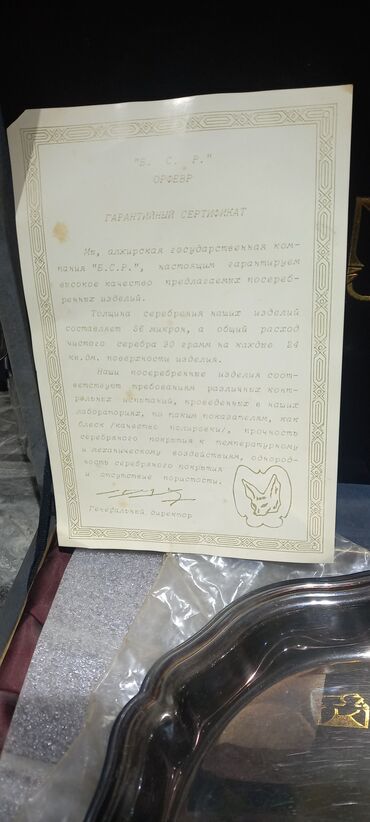 "Б. С. Р."
ОРФЕВР
ГАРАНТИЙНЫЙ СЕРТИФИКАТ
Мы, алжирская государственная ком-
пания "Б.С.Р.", настоящим гарантируем
высокое качество предлагаемых посереб-
ренных изделий.
Толщина серебрения наших изделий
составляет 36 микрон, а общий расход
чистого серебра 90 грамм на каждые 24
кв.дм. поверхности изделия.
Наши посеребренные изделия соот-
ветствует требованиям различных конт-
рольных испытаний, проведенных в наших
лабораториях, по таким показателям, как
блеск /качество полировки/, прочность
серебряного покрытия к температурному
и механическому воздействиям, однород-
ность серебряного покрытия
и отсутствие пористости.
Генеральный директор